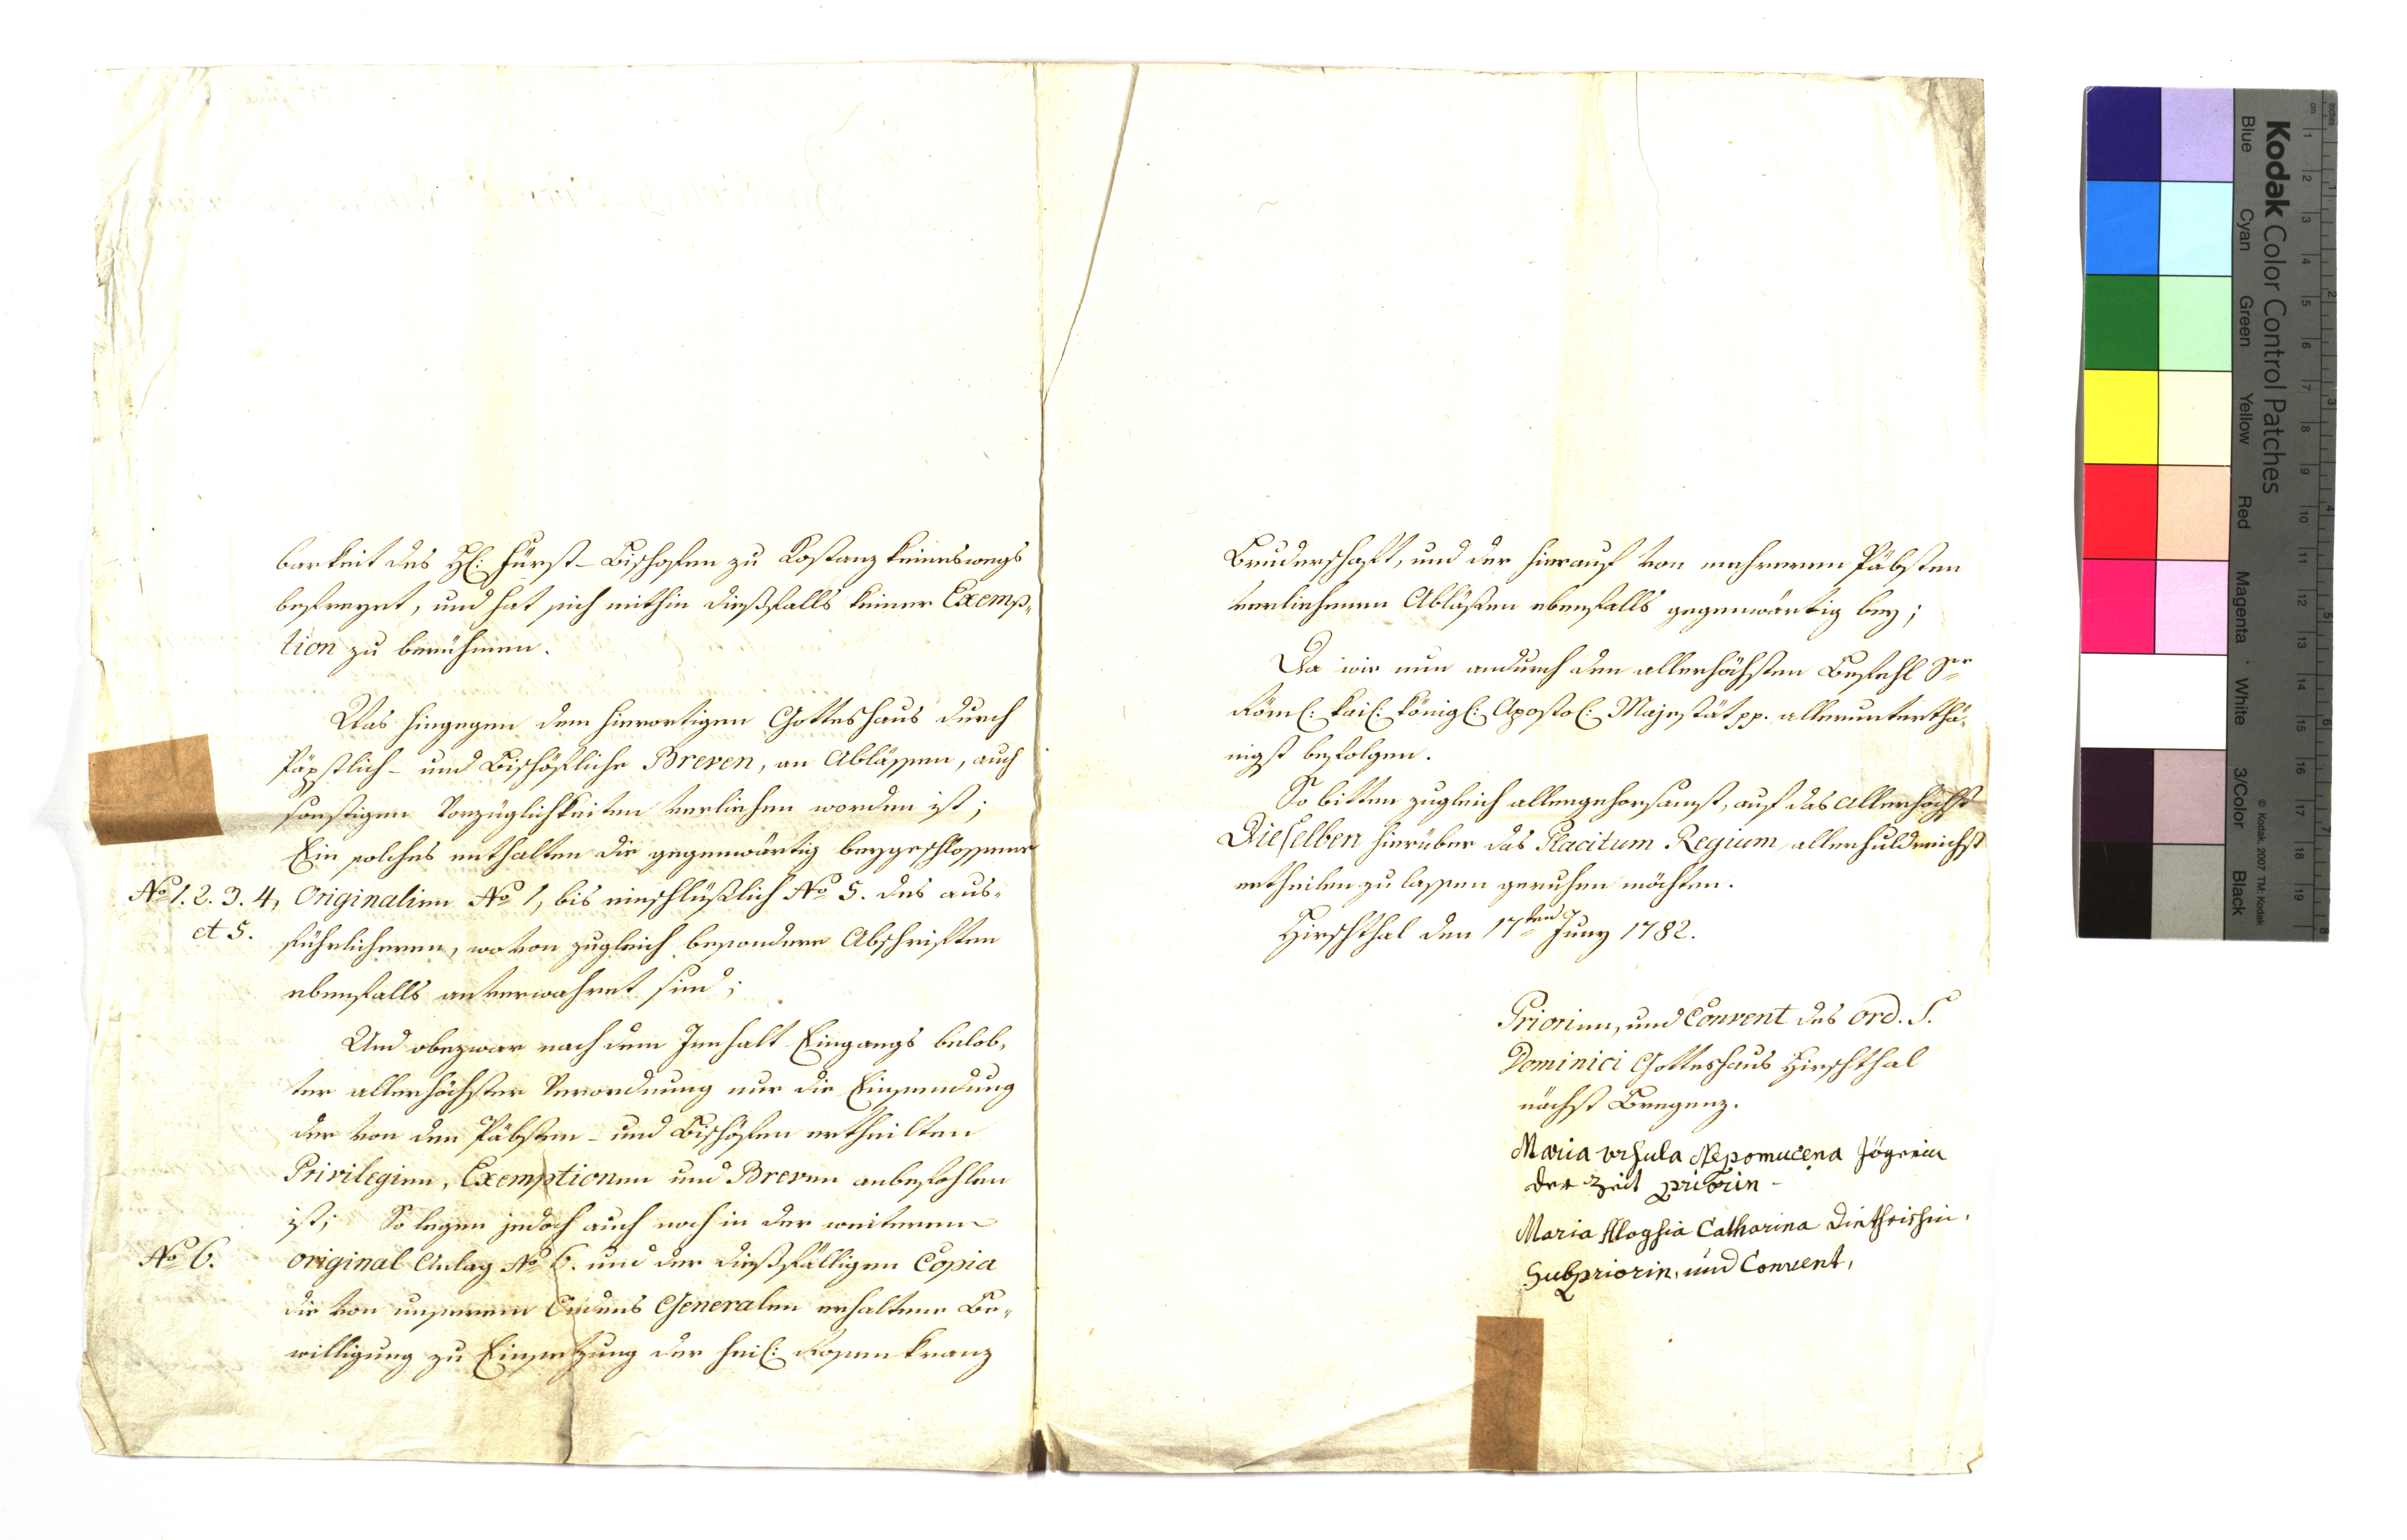 barkeit des H: Fürst-Bischofen zu Kostanz keineswegs
befreyet, und hat sich mithin dießfalls keiner Exemp-
tion zu berühmen.
Was hingegen dem hierortigen Gotteshaus durch
Päpstlich- und Bischöfliche Breven, an Ablässen, auch
sonstigen Vorzüglichkeiten verliehen worden ist;
Ein solches enthalten die gegenwärtig beygeschlossene
No 1. 2. 3. 4, Originalien No 1, bis einschlüßlich No 5. des aus-
et 5. führlicheren, wovon zugleich besondere Abschriften
ebenfalls anverwahret sind;
Und obezwar nach dem Innhalt Eingangs belob-
ter allerhöchster Verordnung nur die Einsendung
der von den Päbsten- und Bischöfen ertheilten
Privilegien, Exemptionen und Breven anbefohlen
ist; So legen jedoch auch noch in der weiteren
No 6. original Anlag No 6. und der dießfälligen Copia
die von unserem Ordens Generalen erhaltene Be-
willigung zu Einsetzung der heil: Rosenkranz
Bruderschaft, und der hierauf von mehreren Päbsten
verliehenen Abläßen ebenfalls gegenwärtig bey;
Da wir nun andurch den allerhöchsten Befehl Sr
Röml: kail: königl: Apostol: Majestät pp. allerunterthä-
nigst befolgen.
So bitten zugleich allergehorsamst, auf das Allerhöchst
Dieselben hierüber das Placitum Regium allerhuldreichst
ertheilen zu lassen geruhen möchten.
Hirschthal den 17ten Juny 1782.
Priorinn, und Convent des Ord. S.
Dominici Gotteshaus Hirschthal
nächst Bregenz.
Maria Vrsula Nepomucena Jögerin
der Zeit priorin -
Maria Aloysia Catharina Dietherichin.
Subpriorin, und Convent,
Kodak Color Control Patches
Blue Cyan Green Yellow Red Magenta White 3/Color Black
© Kodak, 2007 TM: Kodak
inches 1 2 3 4 5 6 7 8
cm 1 2 3 4 5 6 7 8 9 10 11 12 13 14 15 16 17 18 19